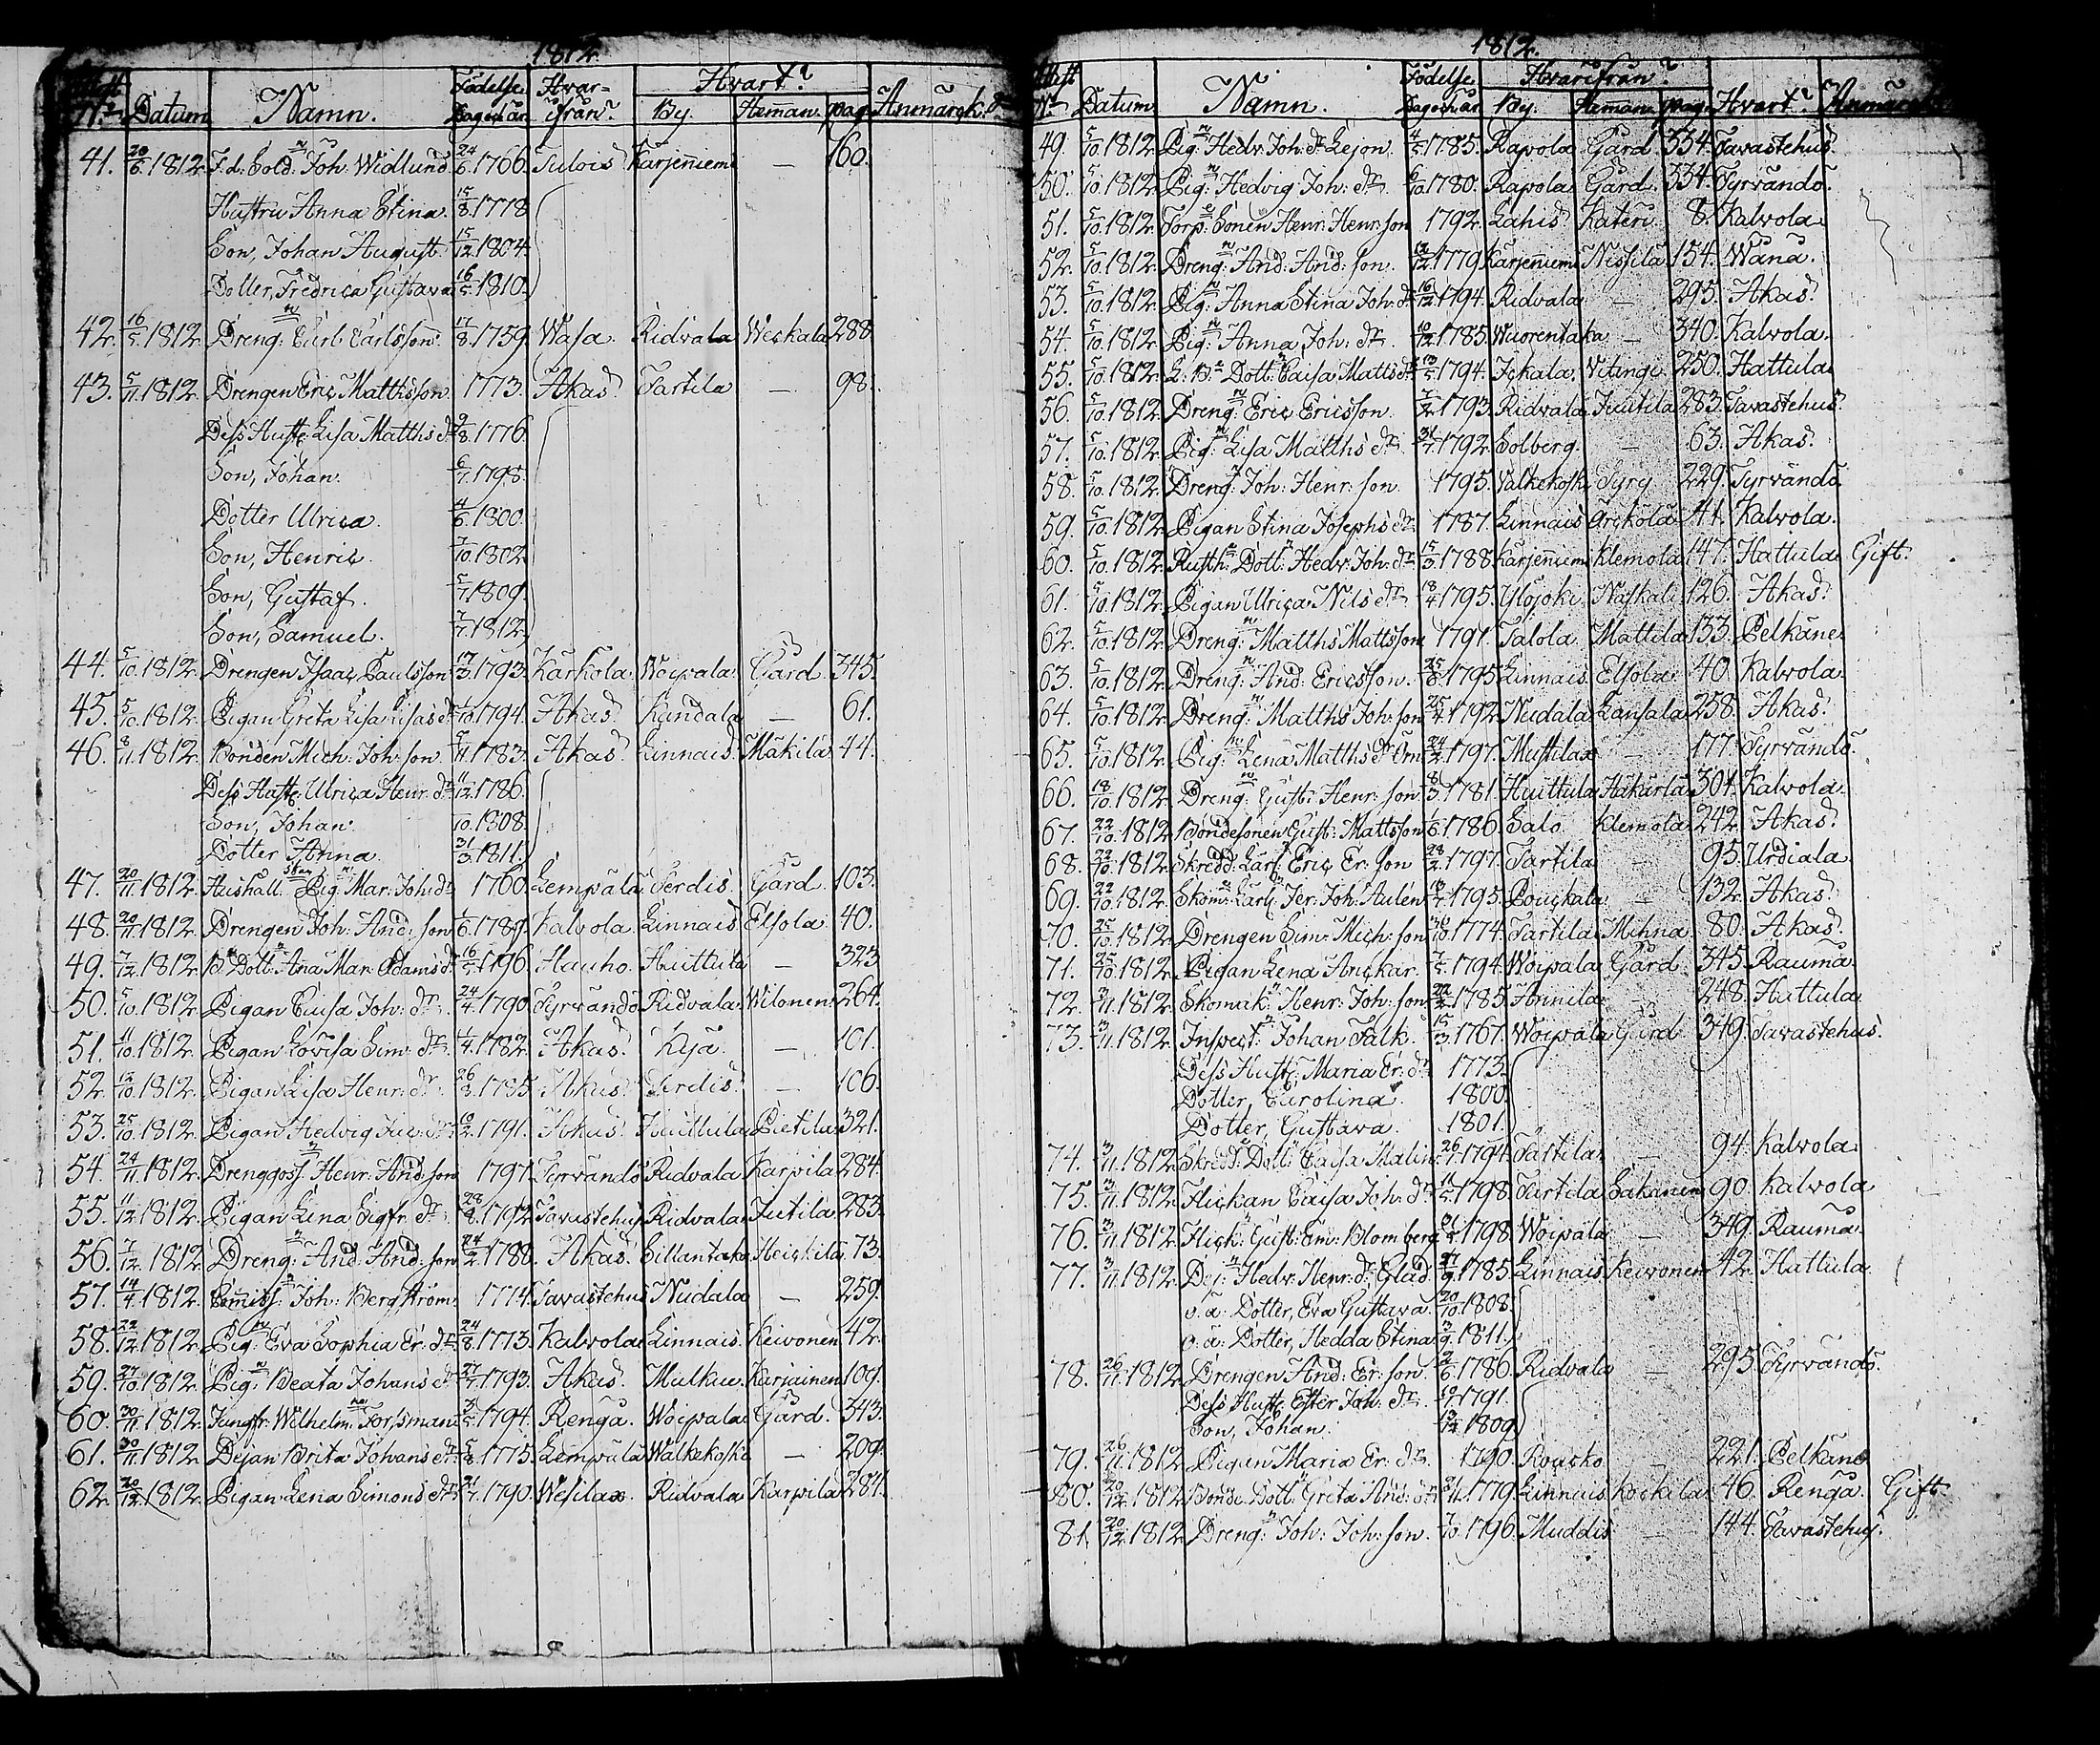 1812.
Attest N:o Datum Namn. Födelse Dag och år Hvar-ifrån. Hvart? By. Hemman. pag. Anmärck.
41. 20/6. 1812. F.d. Sold:n Joh: Widlund 24/6. 1766. Tulois Kärjenniemi — 160.
Hustru Anna Stina. 15/8. 1778
Son, Johan August. 15/12. 1804.
Dotter, Fredrica Gustava 16/5. 1810.
42. 16/5. 1812. Dreng:n Carl Carlsson. 17/8. 1759. Wasa. Ridvala Weckala 288.
43. 5/11. 1812. Drengen Eric Matthsson. 1773. Akas Tartila — 98.
Dess Hustr: Lisa Matths dr 9/8. 1776.
Son, Johan. 6/7. 1798.
Dotter Ulrica. 4/6. 1800.
Son, Henric. 7/10. 1802.
Son, Gustaf. 5/7. 1809.
Son, Samuel. 7/7. 1812.
44. 5/10. 1812. Drengen Isaac Paulsson 17/3. 1793. Kärkola. Woipala Gård. 345.
45. 5/10. 1812. Pigan Greta Lisa Lisas dr 1/10. 1794. Akas. Kandala — 61.
46. 8/11. 1812. Bonden Mich: Joh: son. 5/11. 1783. Akas Linnais Mäkilä 44.
Dess Hustr: Ulrica Henr: dr 11/12. 1786.
Son, Johan. /10. 1808.
Dotter Anna. 31/3. 1811.
47. 20/11. 1812. Hushåll:skan Pig:n Mar: Joh: dr 1760. Lempäla Terdis. Gård 103.
48. 20/11. 1812. Drengen Joh: And: son 1/6. 1789. Kalvola Linnais Elsola 40.
49. 7/12. 1812. B:e Dott:n Ana Mar: Adams dr 16/5. 1796. Hauho. Huittula — 323.
50. 5/10. 1812. Pigan Caisa Joh: dr. 24/4. 1790. Tyrvändö Ridvala Wilonen. 264.
51. 11/10. 1812. Pigan Lovisa Sim: dr. 1/4. 1782. Akas. Kyä. — 101.
52. 12/10. 1812. Pigan Lisa Henr: dr. 26/3. 1795. Akas. Terdis. — 106.
53. 25/10. 1812. Pigan Hedvig Jac: dr. 10/2. 1791. Akas. Huittula Pietila 321.
54. 24/11. 1812. Dränggoss:n Henr: And: son 1797. Tyrvändö Ridvala Karpila 284.
55. 11/12. 1812. Pigan Lena Sigfr: dr. 28/8. 1792. Tavastehus Ridvala Jutila 283.
56. 7/12. 1812. Dreng:n And: And: son 24/2. 1788. Akas. Sillantaka Heickilä 73.
57. 14/4. 1812. Com̃iss:n Joh: Bergström. 1774. Tavastehus Nudala — 259.
58. 22/12. 1812. Pig:n Eva Sophia Er: dr 24/8. 1773. Kalvola Linnais. Keivonen 42.
59. 27/10. 1812. Pig:n Beata Johans dr 27/7. 1793. Akas. Mulkau. Karjainen 109.
60. 30/11. 1812. Jungfr: Wilhelm:na Forssman 3/5. 1794. Rengå. Woipala Gård. 343.
61. 30/11. 1812. Pejan Brita Johans dr. 5/8. 1775. Lempäla Walkekoski — 209.
62. 20/12. 1812. Pigan Lena Simons dr. 21/7. 1790. Wesilax. Ridvala Karpila 284.
1812.
Attest N:o Datum. Namn. Födelse Dag och år Hvarifrån? By. Hemman. pag. Hvart? Anmärck
49. 5/10. 1812. Pig:n Hedv: Joh: dr Lejon. 4/5. 1785. Rapola Gård 334. Tavastehus.
50. 5/10. 1812. Pig:n Hedvig Joh: dr. 6/10. 1780. Rapola Gård. 334. Tyrvändö.
51. 5/10. 1812. Torp:e Sonen Henr: Henr: son 1792. Lahis Kateri 8. Kalvola.
52. 5/10. 1812. Dreng:n And: And: son. 12/12. 1779. Kärjeniemi Nissilä 154. Wånå.
53. 5/10. 1812. Pig:n Anna Stina Joh: dr 16/12. 1794. Ridvala — 295. Akas.
54. 5/10. 1812. Pig:n Anna Joh: dr. 10/12. 1785. Wuorentaka — 340. Kalvola.
55. 5/10. 1812. L: B:e Dott:n Caisa Matts dr. 13/5. 1794. Ickala. Vitingi 250. Hattula
56. 5/10. 1812. Dreng:n Eric Ericsson. 7/2. 1793. Ridvala Juutila 283. Tavastehus.
57. 5/10. 1812. Pig:n Lisa Matths dr. 31/7. 1792. Solberg. — 63. Akas.
58. 5/10. 1812. Dreng:n Joh: Henr: son. 1795. Valkekoski Syrj 229. Tyrvändö.
59. 5/10. 1812. Pigan Stina Josephs dr. 1787. Linnais Arckola 41. Kalvola.
60. 5/10. 1812. Rusth:s Dott:n Hedv: Joh: dr 15/3. 1788. Kärjeniemi Klemola 147. Hattula Gift.
61. 5/10. 1812. Pigan Ulrica Nils dr. 18/4. 1795. Ylöjoki Naskali 126. Akas.
62. 5/10. 1812. Dreng:n Matths Mattsson 1791. Jalola. Mattila 133. Pelkäne.
63. 5/10. 1812. Dreng:n And: Ericsson. 25/8. 1795. Linnais Elsola 40. Kalvola.
64. 5/10. 1812. Dreng:n Matths Joh: son 25/4. 1792. Nudala Lansala 258. Akas.
65. 5/10. 1812. Pig:n Lena Matths dr Örn 24/2. 1797. Mustila — 177. Tyrvändö.
66. 18/10. 1812. Dreng:n Gust: Henr: son 8/3. 1781. Huittula Hakurla 304. Kalvola.
67. 22/10. 1812. Bondesonen Gust: Mattsson 1/6. 1786. Salo Klemola 242. Akas.
68. 22/10. 1812. Skredd: Lärl: Eric Er: son 28/2. 1797. Tartila — 95. Urdiala
69. 22/10. 1812. Skom: Lärl: Jer: Joh: Aulen 18/7. 1795. Pouckala — 132. Akas.
70. 25/10. 1812. Drengen Sim: Mich: son 30/10. 1774. Tartila Mihna 80. Akas.
71. 25/10. 1812. Pigan Lena Anckar. 7/5. 1794. Woipala Gård 345. Rauma.
72. 3/11. 1812. Skomak:n Henr: Joh: son 22/2. 1785. Annila — 248. Hattula
73. 3/11. 1812. Inspect:n Johan Falk. 15/3. 1767. Woipala Gård 349. Tavastehus.
Dess Hustr: Maria Er: dr. 1773.
Dotter, Carolina. 1800.
Dotter, Gustava. 1801.
74. 3/11. 1812. Skredd:e Dott:n Caisa Malin 26/7. 1794. Tartila — 94. Kalvola
75. 3/11. 1812. Flickan Caisa Joh: dr 11/5. 1798. Tartila Sakanen 90. Kalvola
76. 3/11. 1812. Flick:n Gust: Em: Blomberg 21/5. 1798. Woipala — 349. Rauma.
77. 3/11. 1812. Pej:n Hedv: Henr: dr Glad. 27/9. 1785. Linnais Keivonen 42. Hattula
o.ä: Dotter, Eva Gustava. 20/10. 1808.
o.ä: Dotter, Hedda Stina 3/9. 1811.
78. 26/11. 1812. Drengen And: Er: son. 2/6. 1786. Ridvala — 295. Tyrvändö.
Dess Hustr: Ester Joh: dr. 19/7. 1791.
Son, Johan. 13/12. 1809.
79. 26/11. 1812. Pigan Maria Er: dr. 1790. Roucko — 221. Pelkäne
80. 20/12. 1812. Bonde Dott:n Greta And: dr 8/11. 1779. Linnais Kockila 46. Rengå. Gift
81. 20/12. 1812. Dreng:n Joh: Joh: son. 7/10. 1796. Muddis — 144. Tavastehus.